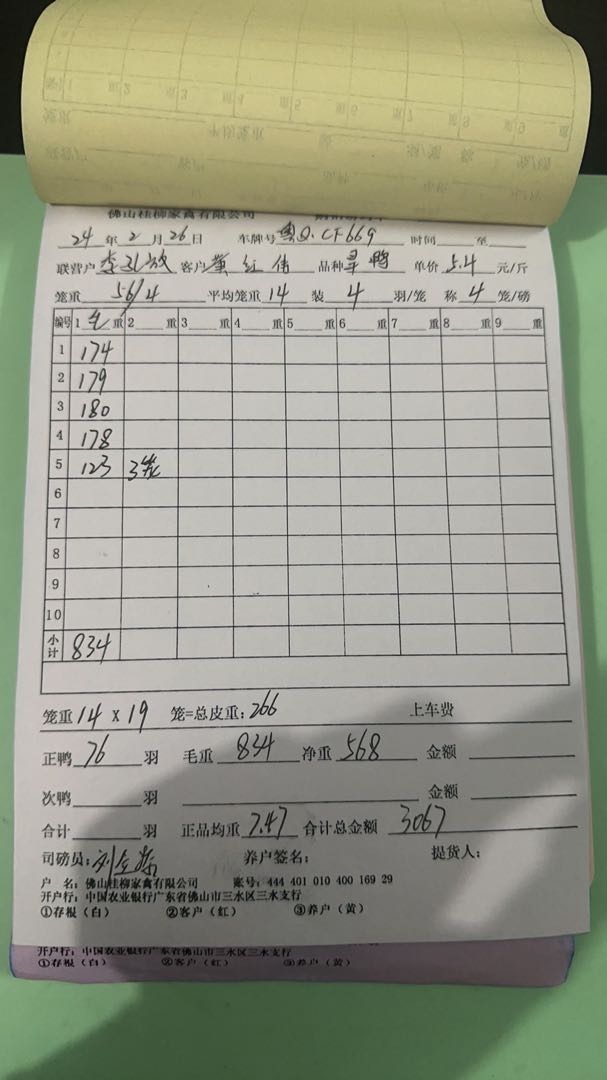 佛山桂柳家禽有限公司
24 年 2 月 26 日 车牌号 粤Q·CF669 时间 至
联营户 客户 黄红伟 品种 旱鸭 单价 5.4 元/斤
笼重 56/4 平均笼重 14 装 4 羽/笼 称 4 笼/磅
编号 1 毛 重 2 重 3 重 4 重 5 重 6 重 7 重 8 重 9 重
1 174
2 179
3 180
4 178
5 123 3笼
6
7
8
9
10
小计 834
笼重 14 x 19 笼=总皮重: 266 上车费
正鸭 76 羽 毛重 834 净重 568 金额
次鸭 羽 金额
合计 羽 正品均重 7.47 合计总金额 3067
司磅员: 养户签名: 提货人:
户 名: 佛山桂柳家禽有限公司 账号: 444 401 010 400 169 29
开户行: 中国农业银行广东省佛山市三水区三水支行
①存根（白） ②客户（红） ③养户（黄）
开户行: 中国农业银行广东省佛山市三水区三水支行
①存根（白） ②客户（红） ③养户（黄）